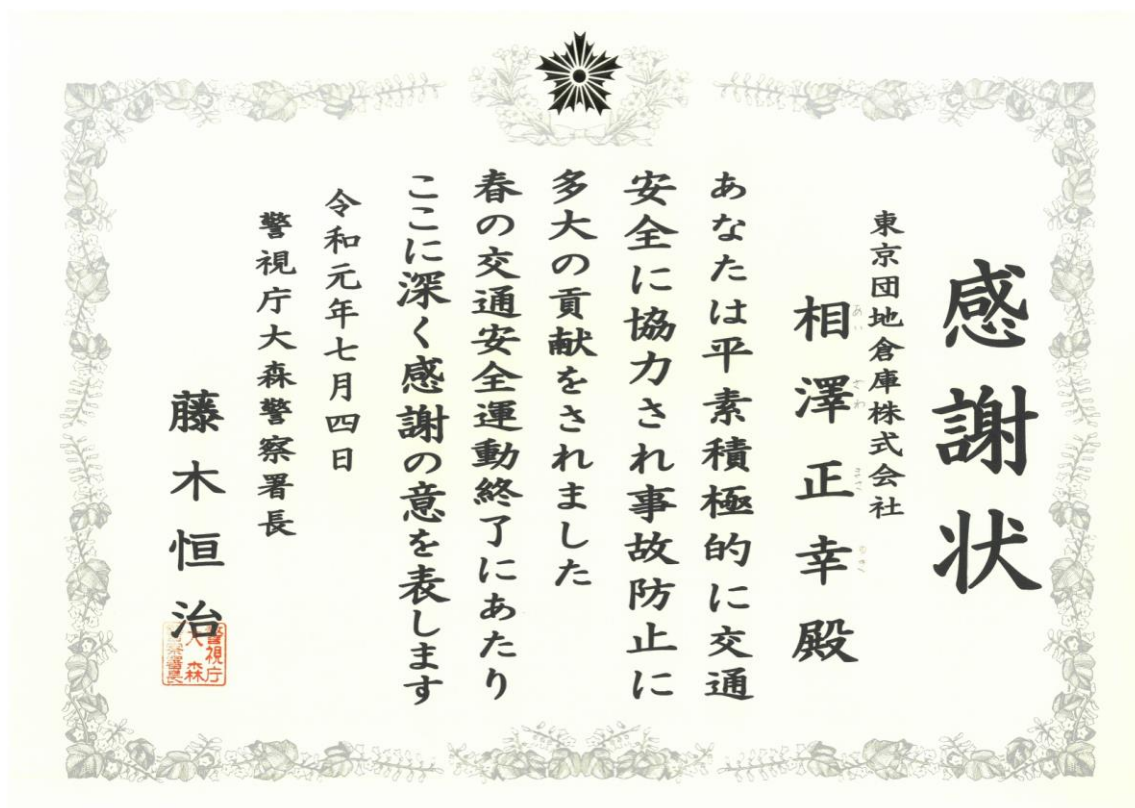 感謝状
東京団地倉庫株式会社
相澤正幸殿
あなたは平素積極的に交通
安全に協力され事故防止に
多大の貢献をされました
春の交通安全運動終了にあたり
ここに深く感謝の意を表します
令和元年七月四日
警視庁大森警察署長
藤木恒治
警視庁
大森
警察署長